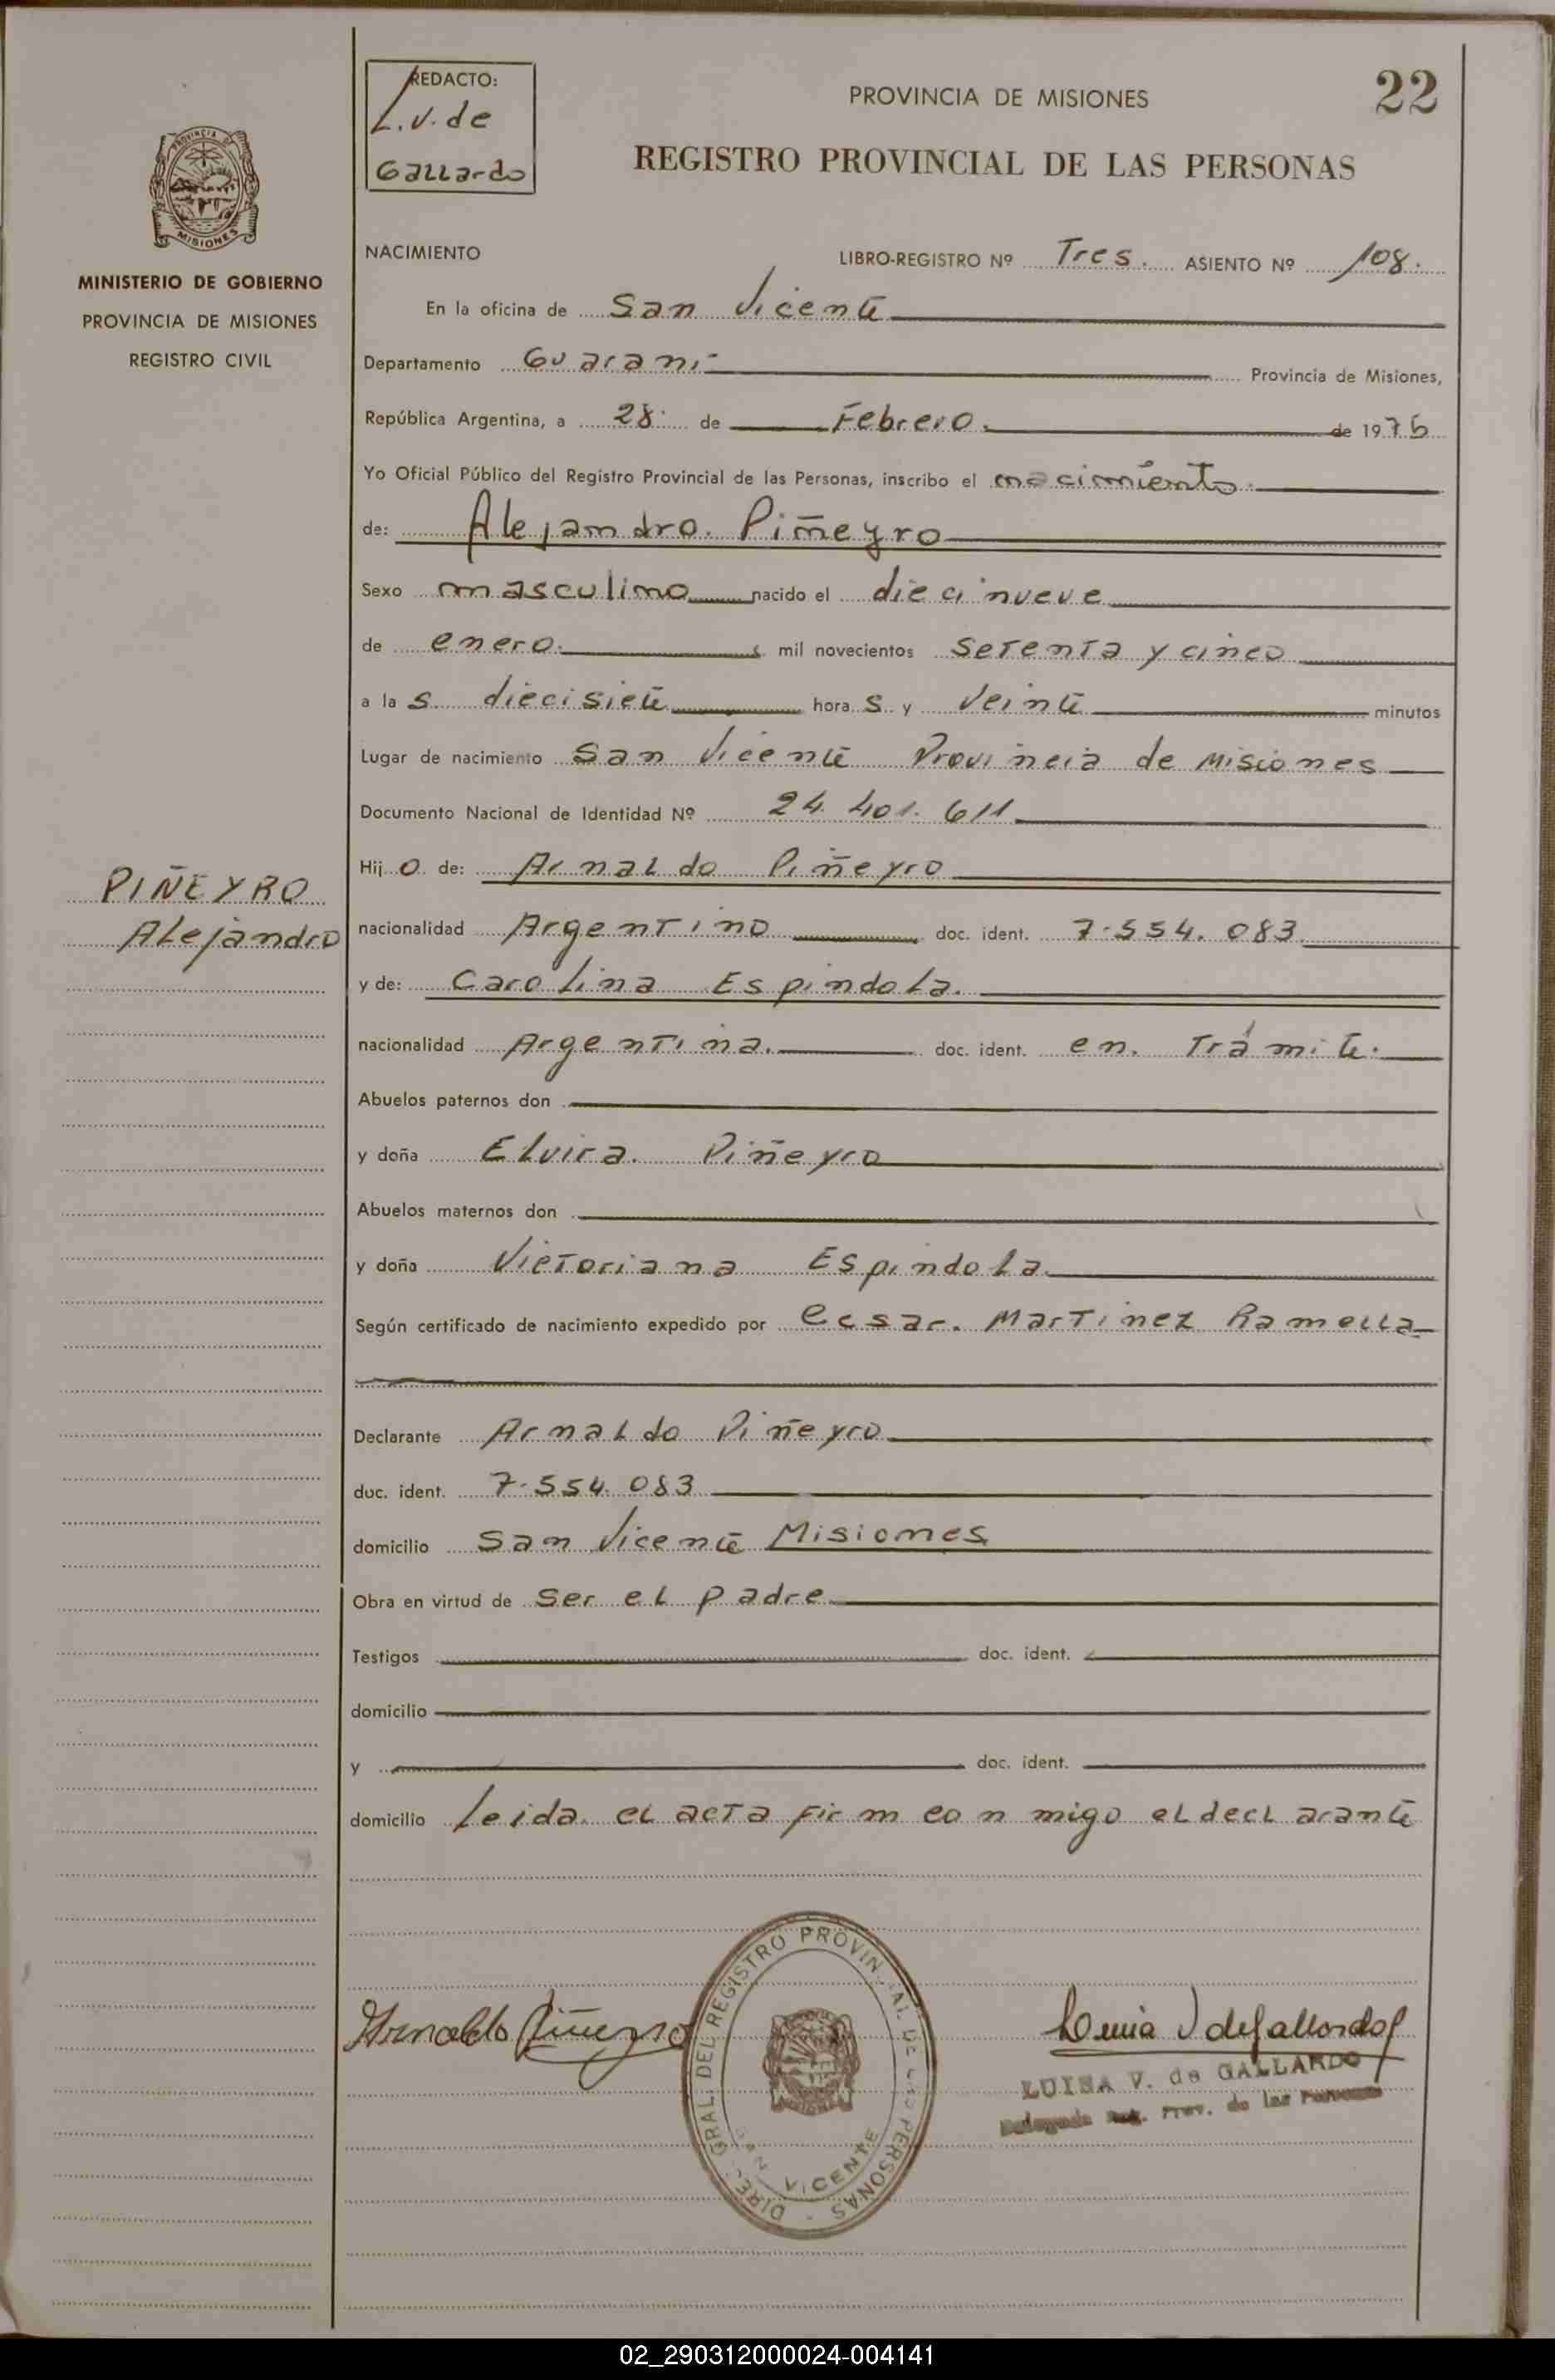 REDACTO:
L. V. de
Gallardo
PROVINCIA DE MISIONES
22
REGISTRO PROVINCIAL DE LAS PERSONAS
PROVINCIA D
MISIONES
MINISTERIO DE GOBIERNO
PROVINCIA DE MISIONES
REGISTRO CIVIL
NACIMIENTO LIBRO-REGISTRO Nº Tres. ASIENTO Nº 108.
En la oficina de San Vicente
Departamento Guaraní Provincia de Misiones,
República Argentina, a 28 de Febrero. de 1975
Yo Oficial Público del Registro Provincial de las Personas, inscribo el nacimiento
de: Alejandro. Piñeyro
Sexo masculino nacido el diecinueve
de enero. mil novecientos setenta y cinco
a las diecisiete horas y veinte minutos
Lugar de nacimiento San Vicente Provincia de Misiones
Documento Nacional de Identidad Nº 24.401.611
Hijo de: Arnaldo Piñeyro
PIÑEYRO
Alejandro
nacionalidad Argentino doc. ident. 7.554.083
y de: Carolina Espindola.
nacionalidad Argentina. doc. ident. en. Trámite.
Abuelos paternos don
y doña Elvira. Piñeyro
Abuelos maternos don
y doña Victoriana Espindola.
Según certificado de nacimiento expedido por Cesar. Martinez Ramella
Declarante Arnaldo Piñeyro
doc. ident. 7.554.083
domicilio San Vicente Misiones
Obra en virtud de ser el padre
Testigos doc. ident.
domicilio
y doc. ident.
domicilio leida. el acta firm con migo el declarante
Arnaldo Piñeyro
DIREC. GRAL. DEL REGISTRO PROVINCIAL DE LAS PERSONAS
SAN VICENTE
Luisa V de Gallardo
LUISA V. de GALLARDO
Delegada Reg. Prov. de las Personas
02_290312000024-004141